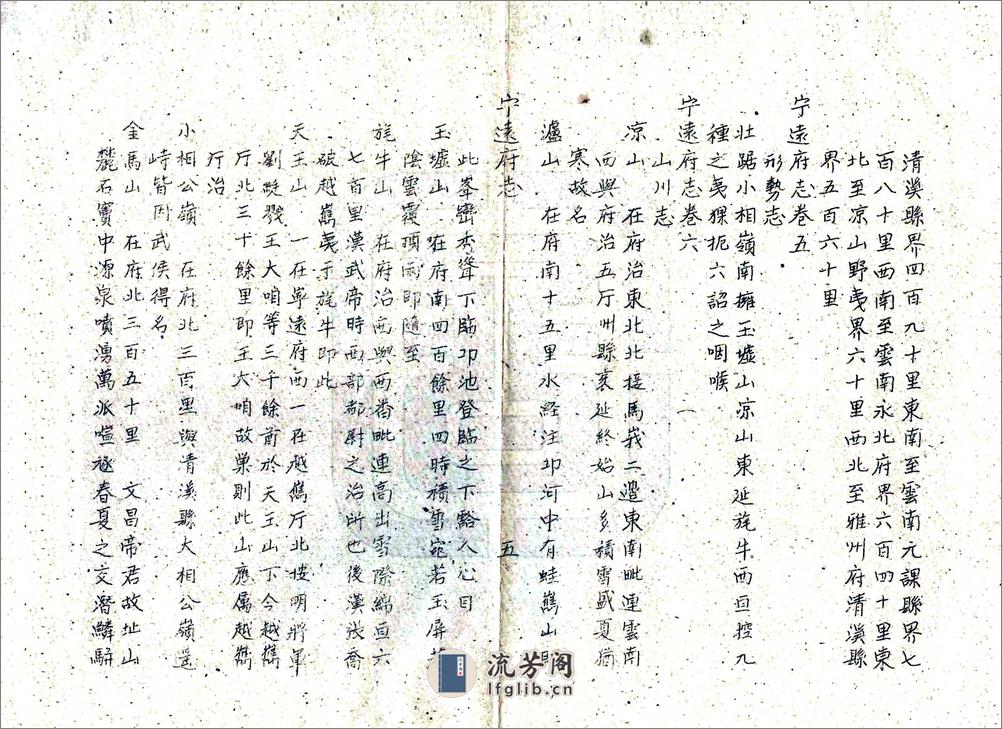 清溪縣界四百九十里東南至雲南元謀縣界七
百八十里西南至雲南永北府界六百四十里東
北至凉山野夷界六十里西北至雅州府清溪縣
界五百六十里
宁遠府志卷五
形勢志
壯踞小相嶺南擁玉墟山凉山東延旄牛西亘控九
種之夷猓扼六詔之咽喉
宁遠府志卷六
山川志
凉山 在府治東北北接馬峩二邊東南毗連雲南
西與府治五厅州縣袤延終始山多積雪盛夏猶
寒故名
瀘山 在府南十五里水経注邛河中有蛙嶲山
宁遠府志 五
此峯巒秀聳下臨邛池登臨之下豁人心目
玉墟山 在府南四百餘里四時積雪宛若玉屏
陰雲覆頂雨即隨至
旄牛山 在府治西與西畨毗連高出雪際綿亘六
七百里漢武帝時西部都尉之治所也後漢張喬
破越嶲夷于旄牛即此
天王山 一在寧遠府西一在越嶲厅北按明將軍
劉綎戮王大咱等三千餘前於天王山下今越嶲
厅北三十餘里即王大咱故巢則此山應属越嶲
厅治
小相公嶺 在府北三百里與清溪縣大相公嶺遥
峙皆因武侯得名
金馬山 在府北三百五十里 文昌帝君故址山
麓石竇中源泉噴湧萬派喧豗春夏之交潛鱗駢
流芳阁
lfglib.cn